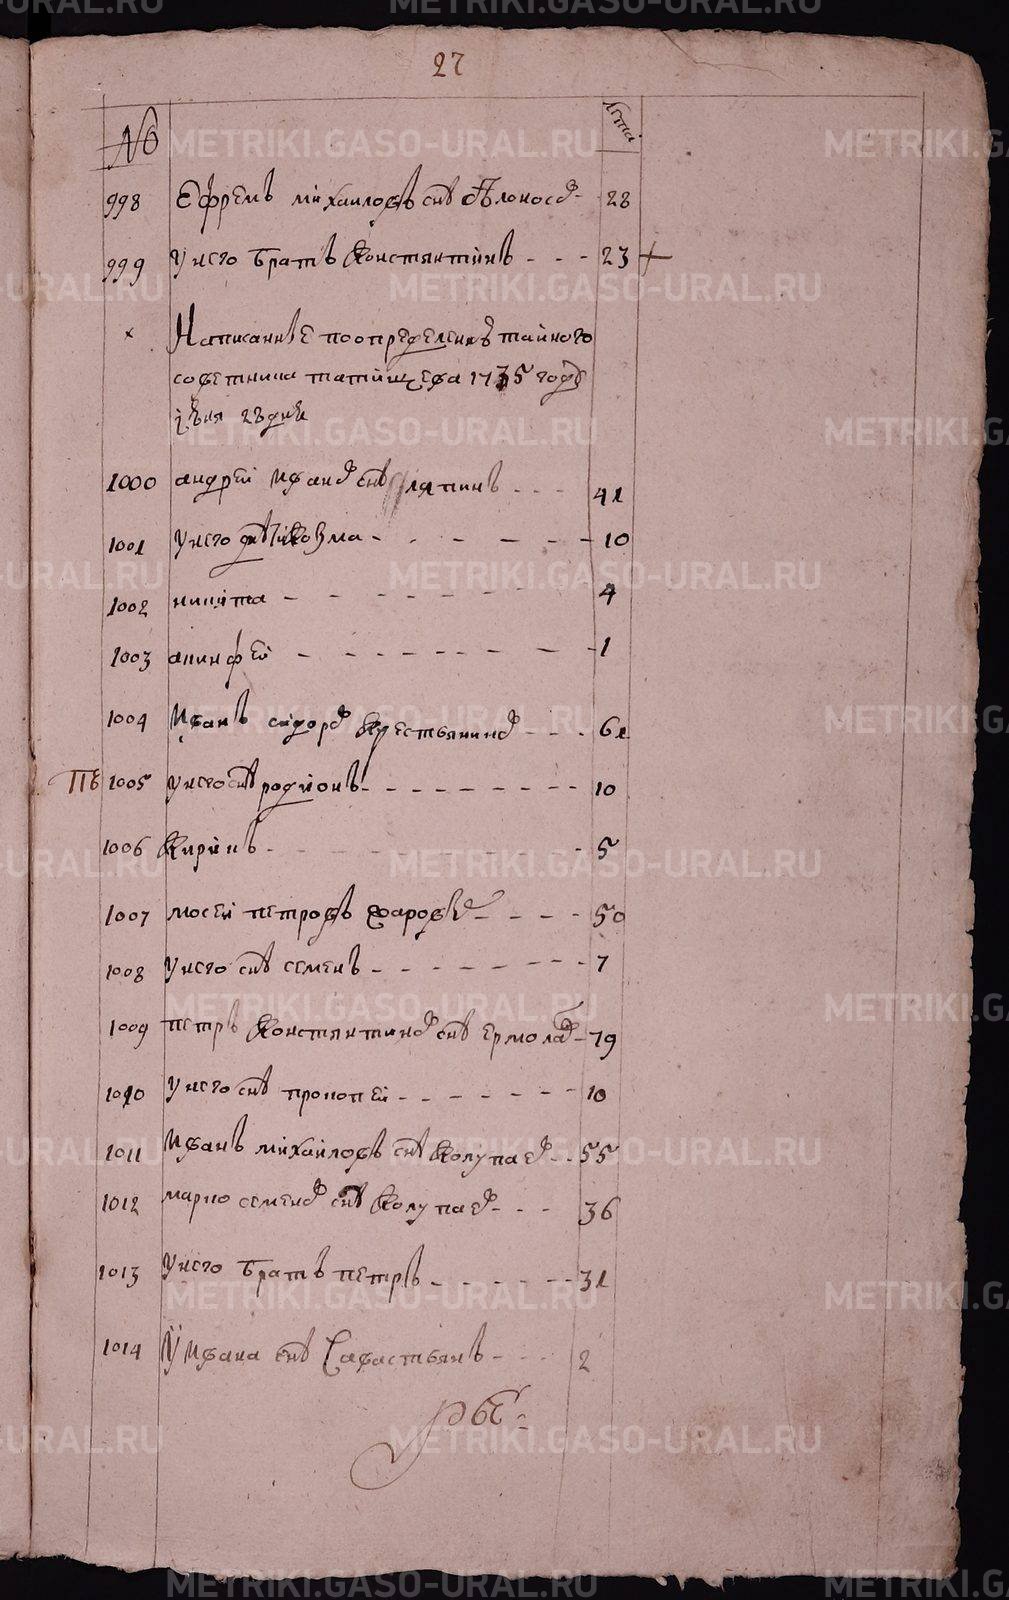 27
№ лѣта
998 Ефремъ михаиловъ снъ бѣлоносо 28
999 У него братъ Констянтинъ - - - 23 +
× Написанные по определению тайного
советника татищева 1735 году
июня 28 дня
1000 андрей Ивано снъ ляпинъ - - - 41
1001 У него снъ козма - - - - - - 10
1002 никита - - - - - - - - 4
1003 акинфей - - - - - - - - 1
1004 Иванъ сидоро Крестьянино - - - 61
1005 У него снъ родионъ - - - - - - - - - 10
1006 Кирикъ - - - - - - - - 5
1007 мосей петровъ - - - - 50
1008 У него снъ семенъ - - - - - - - - 7
1009 петръ Констянтино снъ ермола - 79
1010 У него снъ прокопей - - - - - - - 10
1011 Иванъ михаиловъ снъ Колупае - - 55
1012 марко семено снъ Колупае - - - 36
1013 У него братъ петръ - - - - - - 31
1014 У Ивана снъ Савастьянъ - - - - 2
METRIKI.GASO-URAL.RU